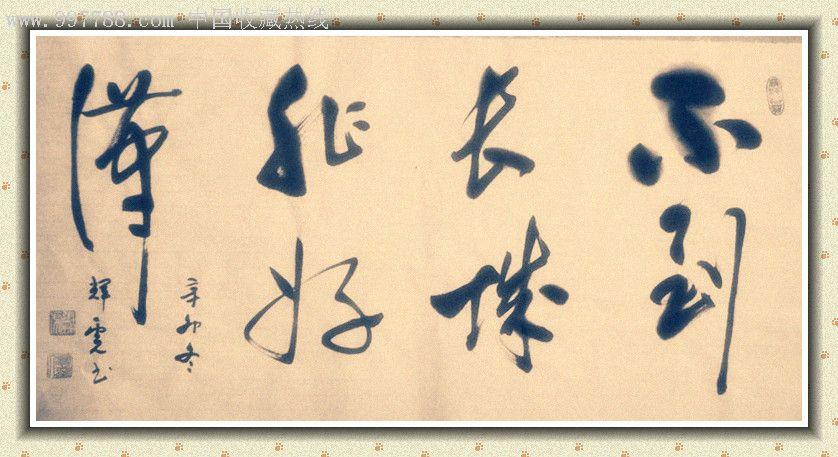 www.997788.com 中国收藏热线
不到
长城
非好
汉
辛卯冬
辉虎书